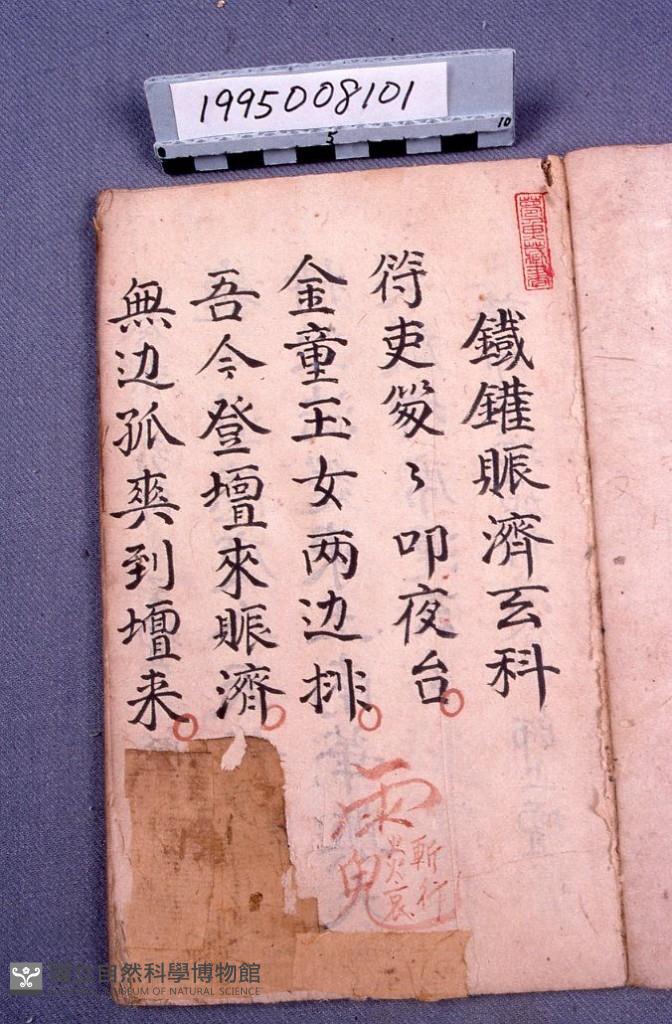 1995008101
5
10
鐵鑵賑濟玄科
符吏匆々叩夜台
金童玉女两边排
吾今登壇來賑濟
無边孤爽到壇来
雨
斬行
國立自然科學博物館
MUSEUM OF NATURAL SCIENCE